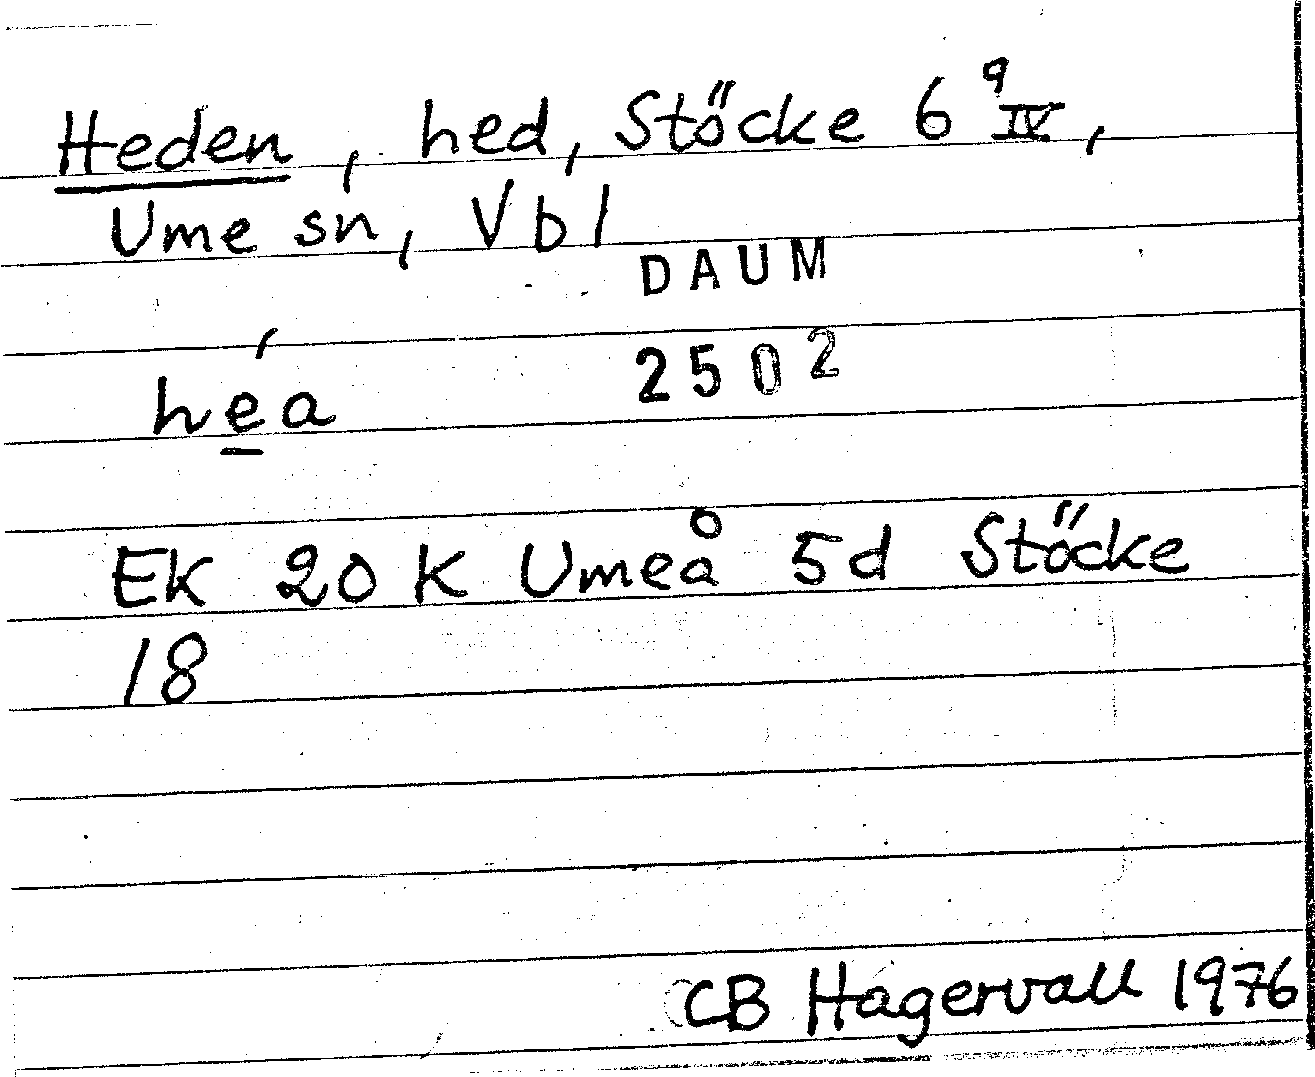 Heden, hed, Stöcke 6⁹ IV,
Ume sn, Vbl
DAUM
2502
hé̲a
EK 20 K Umeå 5d Stöcke
18
CB Hagervall 1976